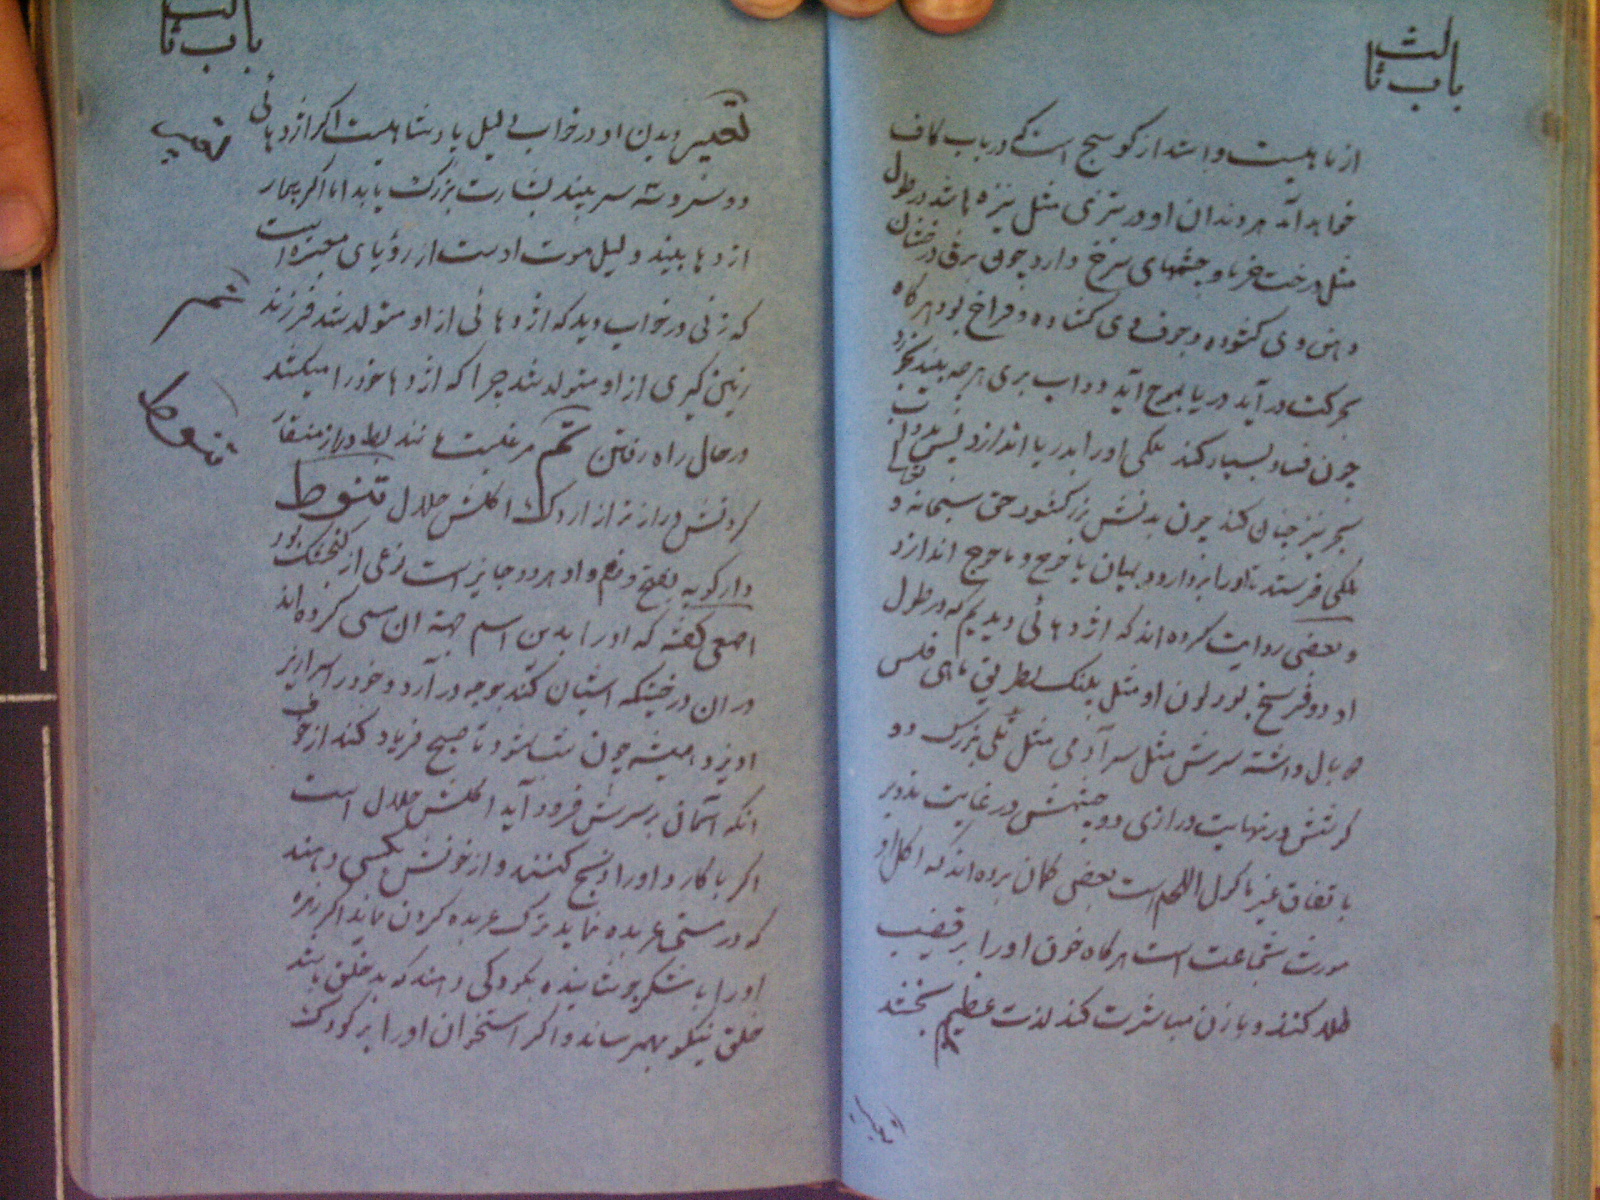 باب ثالث
از ماهیست و ابتدا از کوسج است که در باب کاف
خواهد آمد هر دندان او در تیزی مثل نیزه باشد در طول
مثل درخت خرما و چشمهای سرخ دارد چون برق درخشان
دهن وی کشوده و جوف وی کشاده و فراخ بود هرکاه
بحرکت در آید دریا بموج آید دواب بری هرچه بیند بخورد
چون فساد بسیار کند ملکی او را بدریا اندازد پس بدواب
بحر نیز چنان کند چون بدنش بزرک شود حق سبحانه و تعالی
ملکی فرستد تا او را بردارد و بمیان یاجوج و ماجوج اندازد
و بعضی روایت کرده اند که اژدهائی دیدیم که در طول
او دو فرسخ بود لون او مثل پلنک بطریق ماهی فلس
دو بال داشته سرش مثل سر آدمی مثل تلی بزرک دو
کوشش در نهایت درازی دو چشمش در غایت تدویر
باتفاق غیر ماکول اللحم است بعضی کمان برده اند که اکل او
مورث شجاعت است هرکاه خون او را بر قضیب
طلا کنند و با زن مباشرت کند لذت عظیم بخشد
باب ثالث
تعبیر دیدن او در خواب دلیل پادشاهیست اکر اژدهائی
تعبیر
دو سر و سه سر بیند بشارت بزرک یابد اما اکر بیمار
اژدها بیند دلیل موت اوست از رؤیای معبره است
که زنی در خواب دید که اژدهائی از او متولد شد فرزند
تم
زمین کیری از او متولد شد چرا که اژدها خود را میکشد
تنوط
در حال راه رفتن تم مرغیست مانند بط دراز منقار
کردنش درازتر از اردک اکلش حلال تنوط
دارکوبه بفتح و ضم واو هر دو جایز است نوعی از کنجشک بود
اصمعی کفته که او را بدین اسم جهة آن مسمی کرده اند
در آن درختیکه آشیان کند بوجه در آرد و خود را سرازیر
آویزد همیشه چون شب شود تا صبح فریاد کند از خوف
آنکه آسمان بر سرش فرود آید اکلش حلال است
اکر با کارد او را ذبح کنند و از خونش بکسی دهند
که در مستی عربده نماید ترک عربده کردن نماید اکر زهره
او را با شکر جوشانیده بکودکی دهند که بد خلق باشد
خلق نیکو بهم رساند و اکر استخوان او را بر کودک